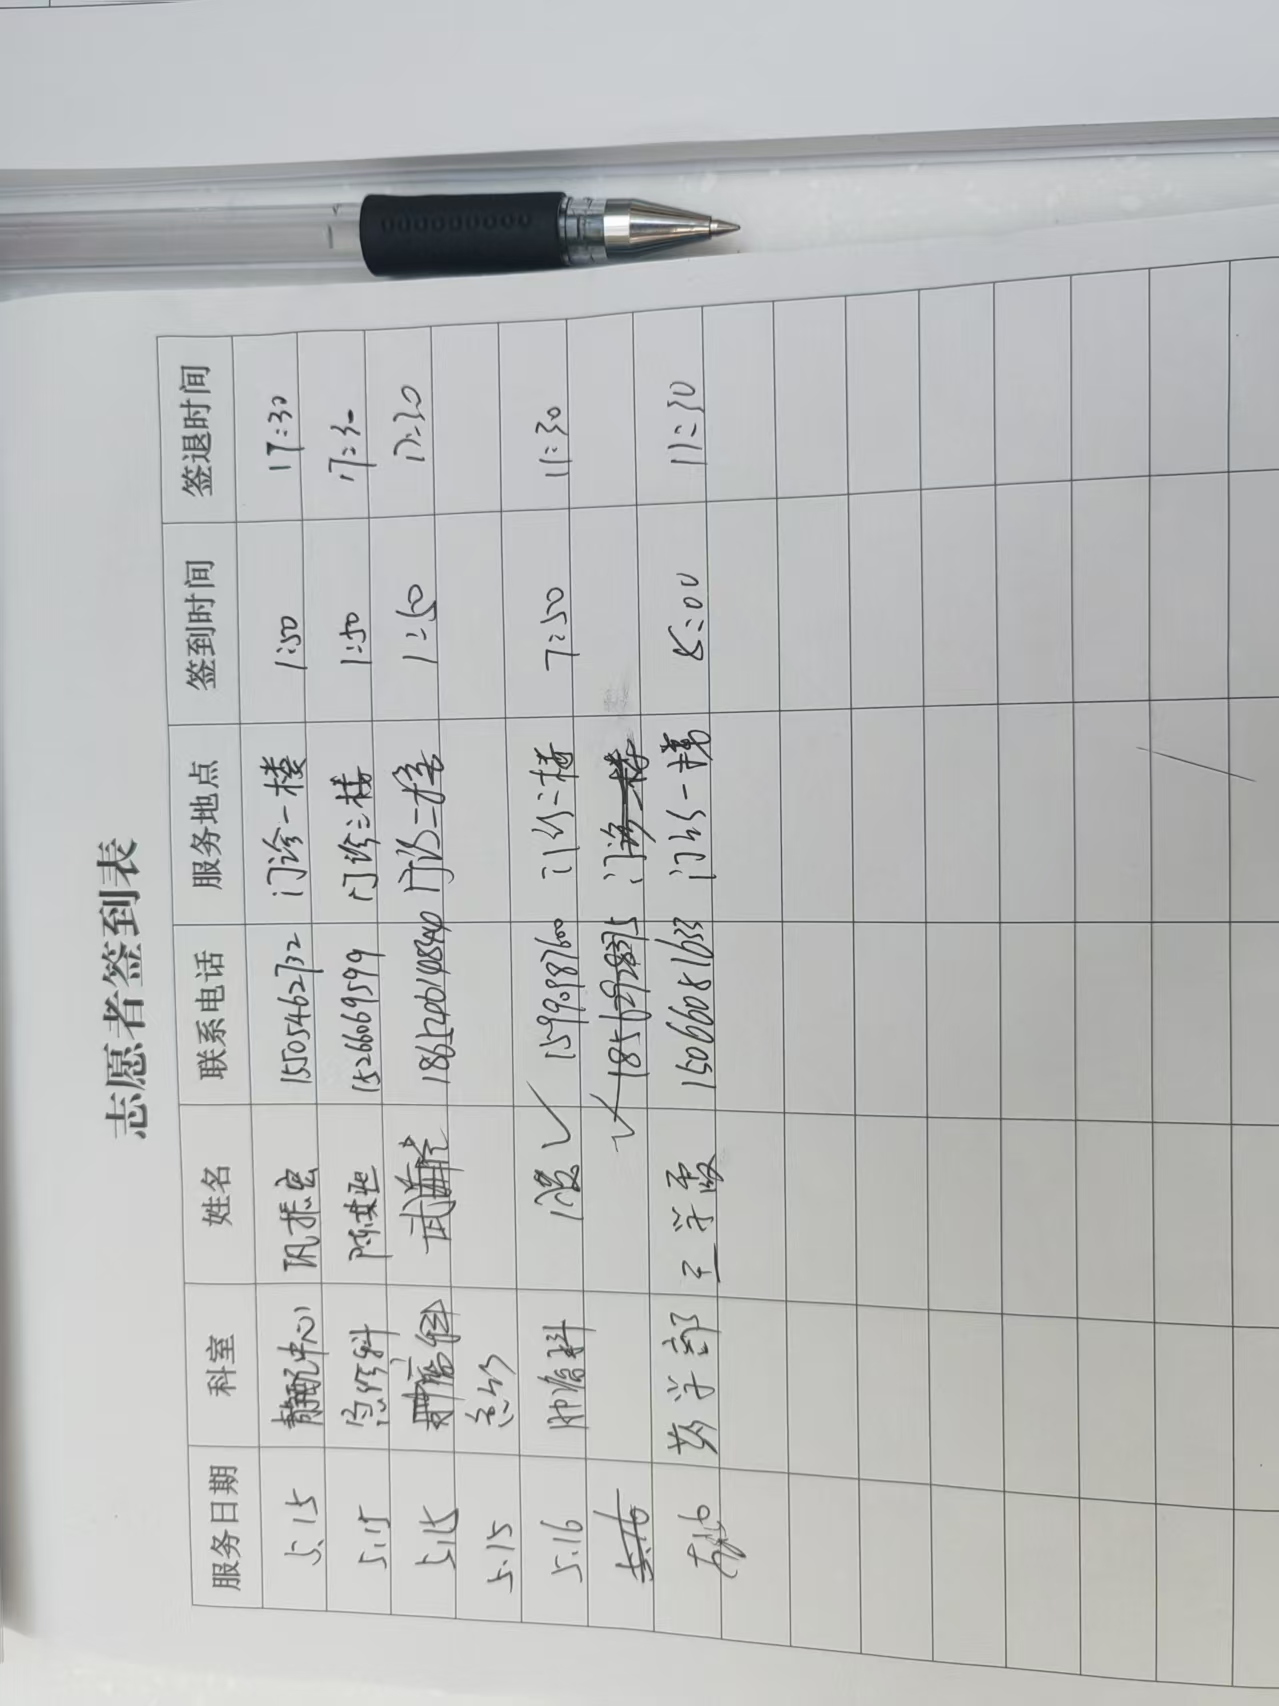 志愿者签到表
服务日期 科室 姓名 联系电话 服务地点 签到时间 签退时间
5.15 静配中心 巩振宏 15505462732 门诊一楼 1:50 17:30
5.15 急诊科 陈英 15266069599 门诊二楼 1:50 17:30
5.15 肿瘤 武 门诊二楼 1:50 17:30
5.15 急诊
5.16 肿瘤科 ✓ 15990987600 门诊二楼 7:50 11:30
5.16 ✓ 门诊二楼
药学部 王学霞 15066081633 门诊一楼 8:00 11:30